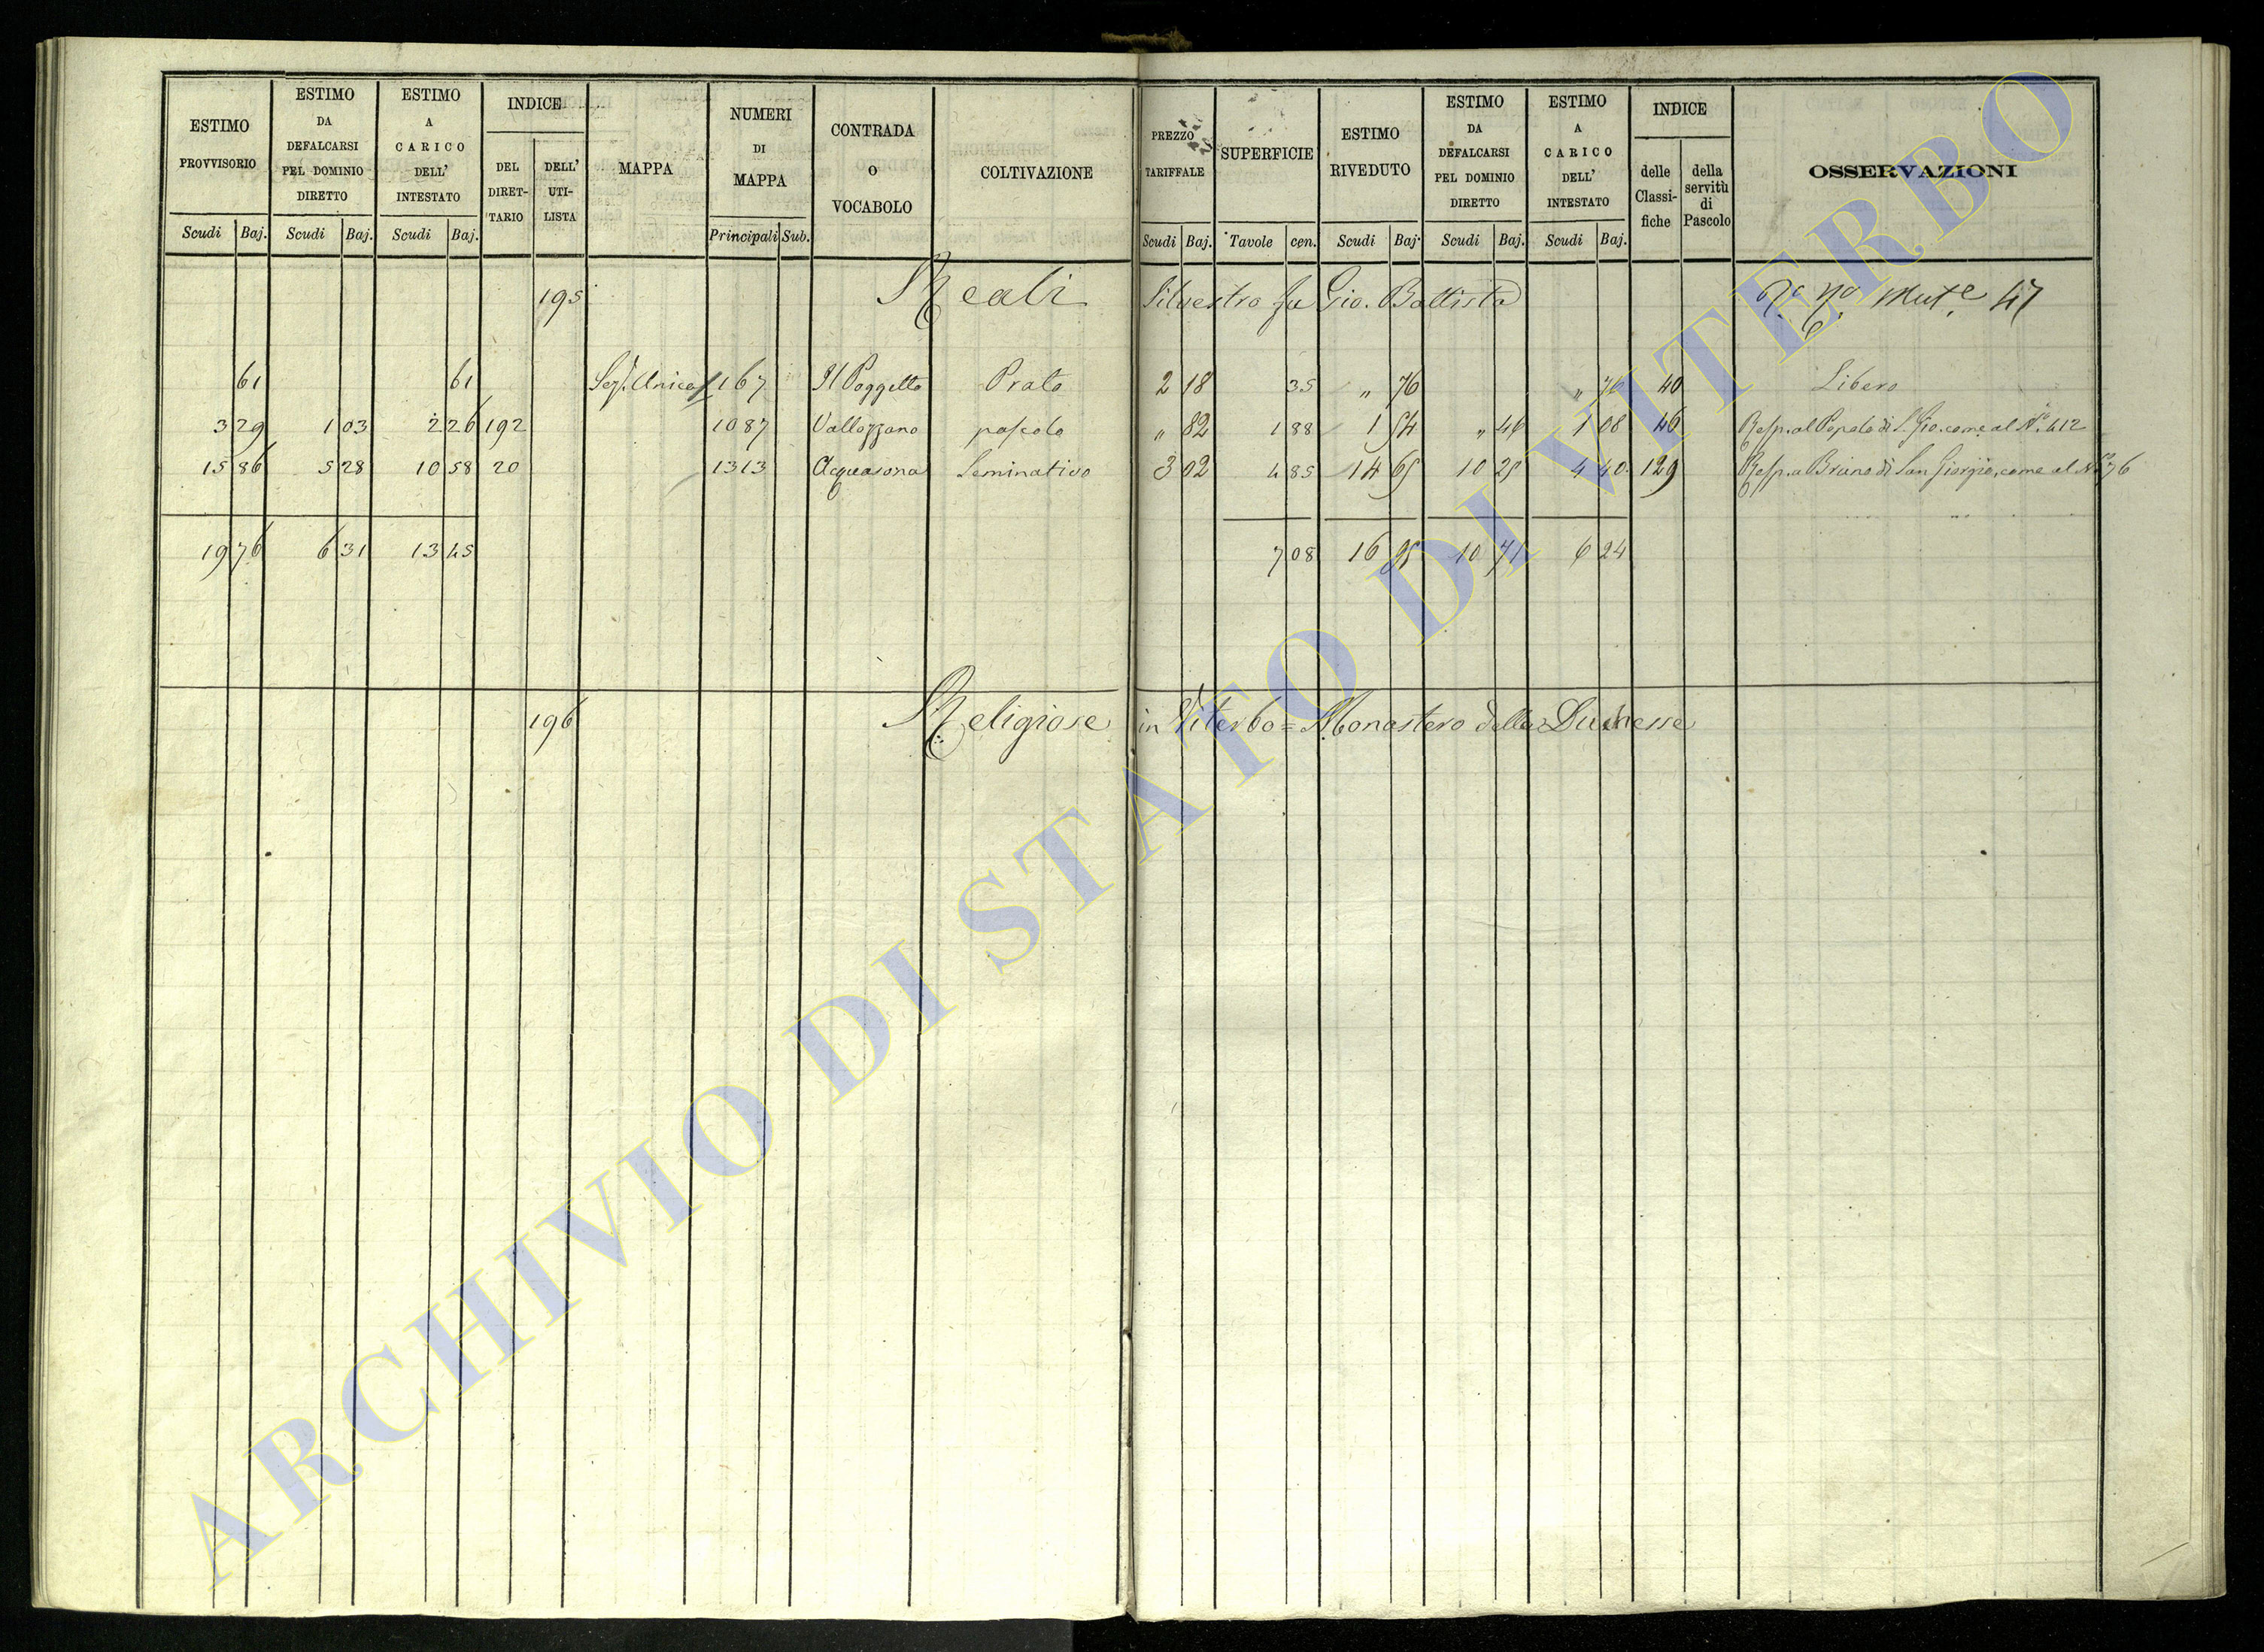 ESTIMO PROVVISORIO
Scudi Baj.
ESTIMO DA DEFALCARSI PEL DOMINIO DIRETTO
Scudi Baj.
ESTIMO A CARICO DELL' INTESTATO
Scudi Baj.
INDICE
DEL DIRET-TARIO
DELL' UTI-LISTA
MAPPA
NUMERI DI MAPPA
Principali Sub.
CONTRADA O VOCABOLO
COLTIVAZIONE
PREZZO TARIFFALE
Scudi Baj.
SUPERFICIE
Tavole cen.
ESTIMO RIVEDUTO
Scudi Baj.
ESTIMO DA DEFALCARSI PEL DOMINIO DIRETTO
Scudi Baj.
ESTIMO A CARICO DELL' INTESTATO
Scudi Baj.
INDICE
delle Classi-fiche
della servitù di Pascolo
OSSERVAZIONI
195 Reali Silvestro fu Gio. Battista 47
61 61 Sez. Unica 167 Il Poggetto Prato 2 18 35 „ 76 „ 76 40 Libero
3 29 1 03 2 26 192 1087 Vallozzano pascolo „ 82 1 88 1 54 „ 46 1 08 46 Resp. al Popolo di S. Gio. come al N.o 412
15 86 5 28 10 58 20 1313 Acquasona Seminativo 3 02 4 85 14 65 10 25 4 40 129 Resp. a Bruno di San Giorgio, come al No 76
19 76 6 31 13 45 7 08 16 95 10 71 6 24
196 Religiose in Viterbo = Monastero della Duchesse
ARCHIVIO DI STATO DI VITERBO